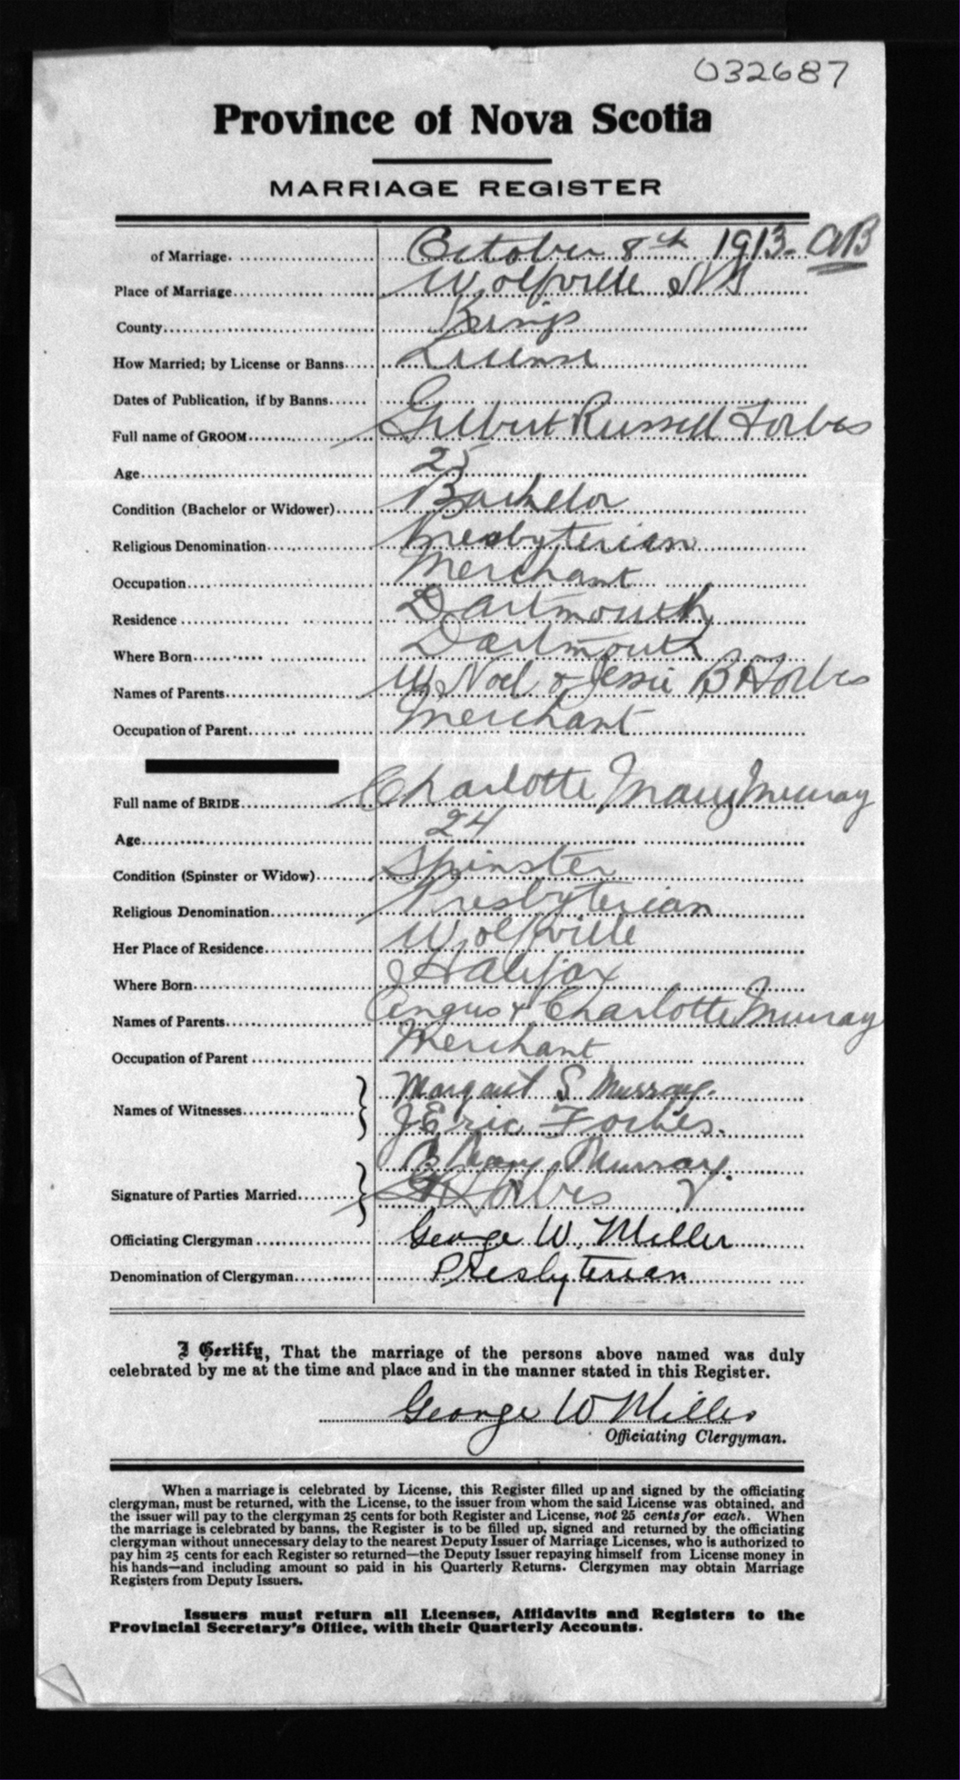 032687
Province of Nova Scotia
MARRIAGE REGISTER
of Marriage. October 8th 1913 - AB
Place of Marriage Wolfville NS
County Kings
How Married; by License or Banns License
Dates of Publication, if by Banns
Full name of GROOM Gilbert Russell Forbes
Age 25
Condition (Bachelor or Widower) Bachelor
Religious Denomination Presbyterian
Occupation Merchant
Residence Dartmouth
Where Born Dartmouth
Names of Parents W Noel & Jessie B Forbes
Occupation of Parent Merchant
Full name of BRIDE Charlotte Mary Murray
Age 24
Condition (Spinster or Widow) Spinster
Religious Denomination Presbyterian
Her Place of Residence Wolfville
Where Born Halifax
Names of Parents Angus & Charlotte Murray
Occupation of Parent Merchant
Names of Witnesses Margaret S Murray.
J Eric Forbes.
C Mary Murray.
Signature of Parties Married G R Forbes
Officiating Clergyman George W. Miller
Denomination of Clergyman Presbyterian
I Certify, That the marriage of the persons above named was duly
celebrated by me at the time and place and in the manner stated in this Register.
George W Miller
Officiating Clergyman.
When a marriage is celebrated by License, this Register filled up and signed by the officiating
clergyman, must be returned, with the License, to the issuer from whom the said License was obtained, and
the issuer will pay to the clergyman 25 cents for both Register and License, not 25 cents for each. When
the marriage is celebrated by banns, the Register is to be filled up, signed and returned by the officiating
clergyman without unnecessary delay to the nearest Deputy Issuer of Marriage Licenses, who is authorized to
pay him 25 cents for each Register so returned—the Deputy Issuer repaying himself from License money in
his hands—and including amount so paid in his Quarterly Returns. Clergymen may obtain Marriage
Registers from Deputy Issuers.
Issuers must return all Licenses, Affidavits and Registers to the
Provincial Secretary's Office, with their Quarterly Accounts.